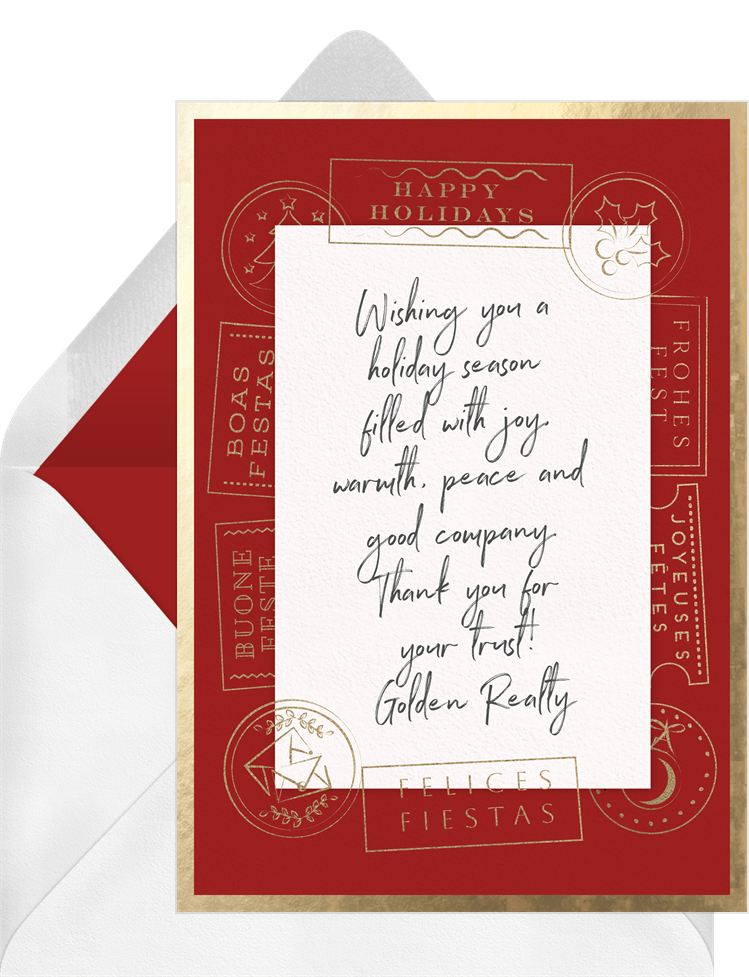 HAPPY
HOLIDAYS
BOAS
FESTAS
FROHES
FEST
Wishing you a
holiday season
filled with joy,
warmth, peace and
good company.
Thank you for
your trust!
Golden Realty
BUONE
FESTE
JOYEUSES
FÊTES
FELICES
FIESTAS